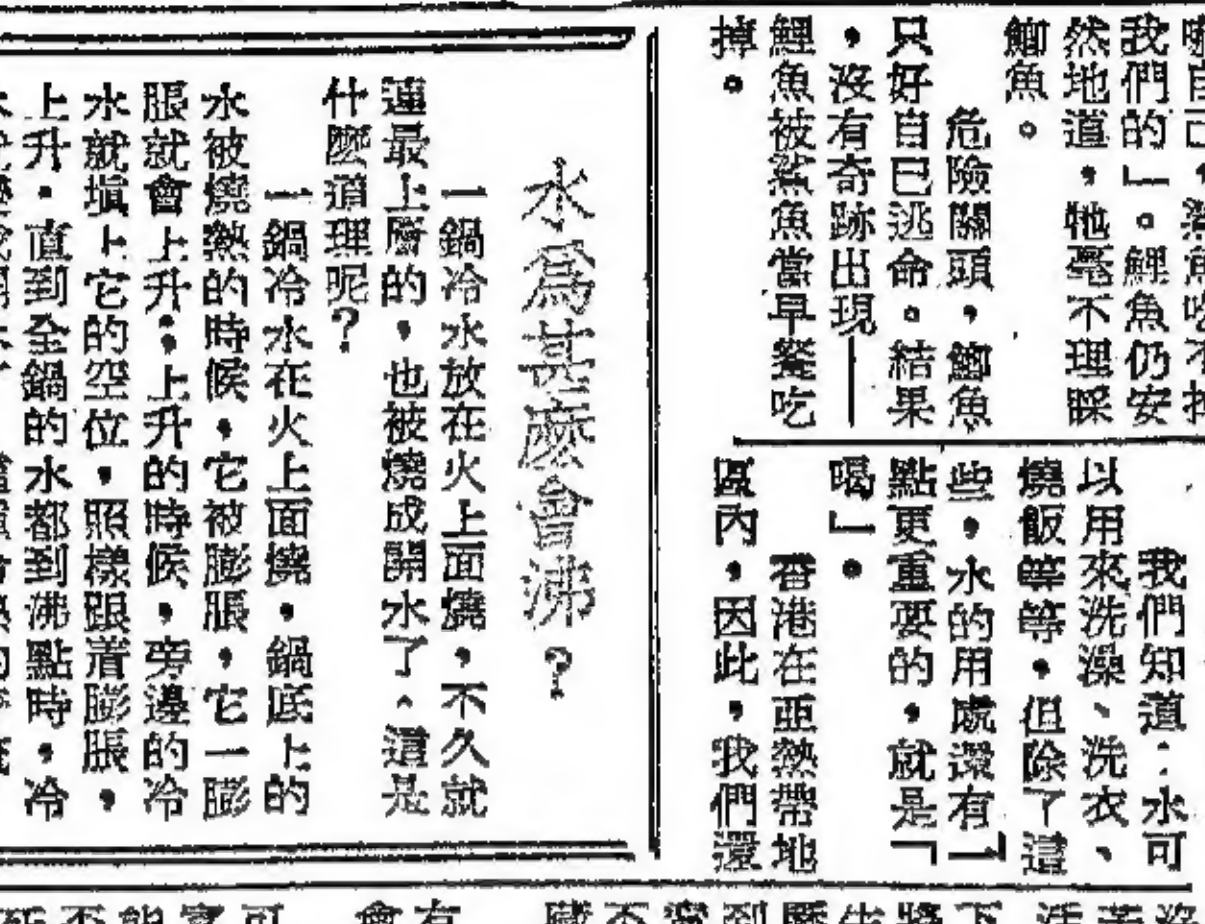 我們的」。鯉魚仍安
然地道,牠毫不理睬
鰂魚。
危險關頭,鰂魚
只好自已逃命。結果
,沒有奇跡出現——
鯉魚被鯊魚當早餐吃
掉。
我們知道:水可
以用來洗澡、洗衣、
燒飯等等,但除了這
些,水的用處還有一
點更重要的,就是「
喝」。
香港在亞熱帶地
區內,因此,我們還
水爲甚麽會沸?
一鍋冷水放在火上面燒,不久就
連最上層的,也被燒成開水了、這是
什麽道理呢?
一鍋冷水在火上面燒,鍋底上的
水被燒熱的時候,它被膨脹,它一膨
脹就會上升;上升的時候,旁邊的冷
水就塡上它的空位,照樣跟着膨脹,
上升,直到全鍋的水都到沸點時,冷